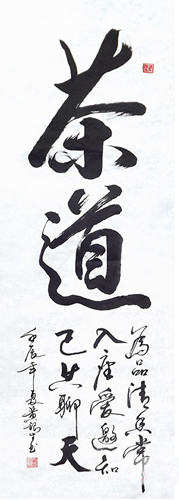 茶道
為品清香常
入座愛邀知
己共聊天
壬辰年夏黄